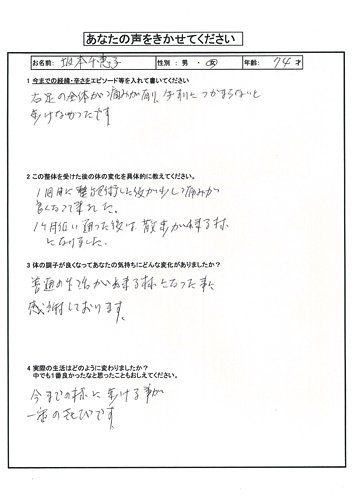 あなたの声をきかせてください
お名前: 坂本千恵子 性別: 男・女 年齢: 74 才
1 今までの経緯・辛さをエピソード等を入れて書いてください
右足の全体がい痛みが有り、手すりにつかまらないと
歩けなかったです
2 この整体を受けた後の体の変化を具体的に教えてください。
1回目に整体を行った後が少し痛みが
良くなって来れた。
1ヶ月近い通った後は散歩が出来る様
になりました。
3 体の調子が良くなってあなたの気持ちにどんな変化がありましたか?
普通の生活が出来る様になった事に
感謝しております。
4 実際の生活はどのように変わりましたか?
中でも1番良かったなと思ったこともおしえてください。
今までの様に歩ける事が
一番の喜びです。